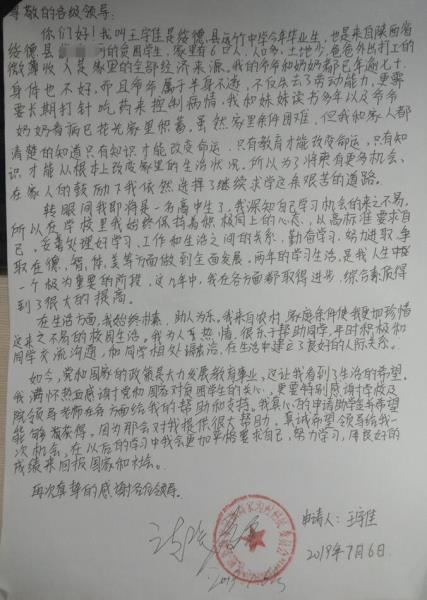 尊敬的各级领导：
你们好！我叫王宇佳是绥德县 竹中学今年毕业生，也是来自陕西省
绥德县 的贫困学生，家里有6口人，人口多，土地少，爸爸外出打工的
微薄收入是家里的全部经济来源，我的爷爷和奶奶都已年逾七十，
身体也不好，而且爷爷属于半身不遂，不仅失去了劳动能力，更需
要长期打针吃药来控制病情，我和妹妹读书多年以及爷爷
奶奶看病已花光家里积蓄。虽然家里条件困难，但我和家人都
清楚的知道只有知识才能改变命运，只有教育才能改变命运，只有知
识才能从根本上改变家里的生活状况。所以为了将来有更多机会，
在家人的鼓励下我依然选择了继续求学这条艰苦的道路。
转眼间我即将是一名高中生了，我深知自己学习机会的来之不易，
所以在学校里我始终保持着积极向上的心态，从高标准要求自
己，妥善处理好学习、工作和生活之间的关系，勤奋学习，努力进取，争
取在德、智、体、美等方面做到全面发展。两年的学习生活，是我人生中极
一个极为重要的阶段，这几年中，我在各方面都取得进步，综合素质得
到了很大的提高。
在生活方面，我始终朴素，助人为乐。我来自农村，家庭条件使我更加珍惜
这来之不易的校园生活。我为人热情，很乐于帮助同学，平时积极和
同学交流沟通，和同学相处融洽，在生活中建立了良好的人际关系。
如今，党和国家的政策是大力发展教育事业，这让我看到了生活的希望。
我满怀热血感谢党和国家对贫困学生的关心，更要特别感谢学校及
院领导老师在各方面给我的帮助和支持。我真心的申请助学金并希望
能够有获得，因为那会对我提供很大帮助。真诚希望领导给我一
次机会，在以后的学习中我会更加严格要求自己，努力学习，用良好的
成绩来回报国家和社会。
再次真挚的感谢各位领导。
申请人：王宇佳
2019年7月6日